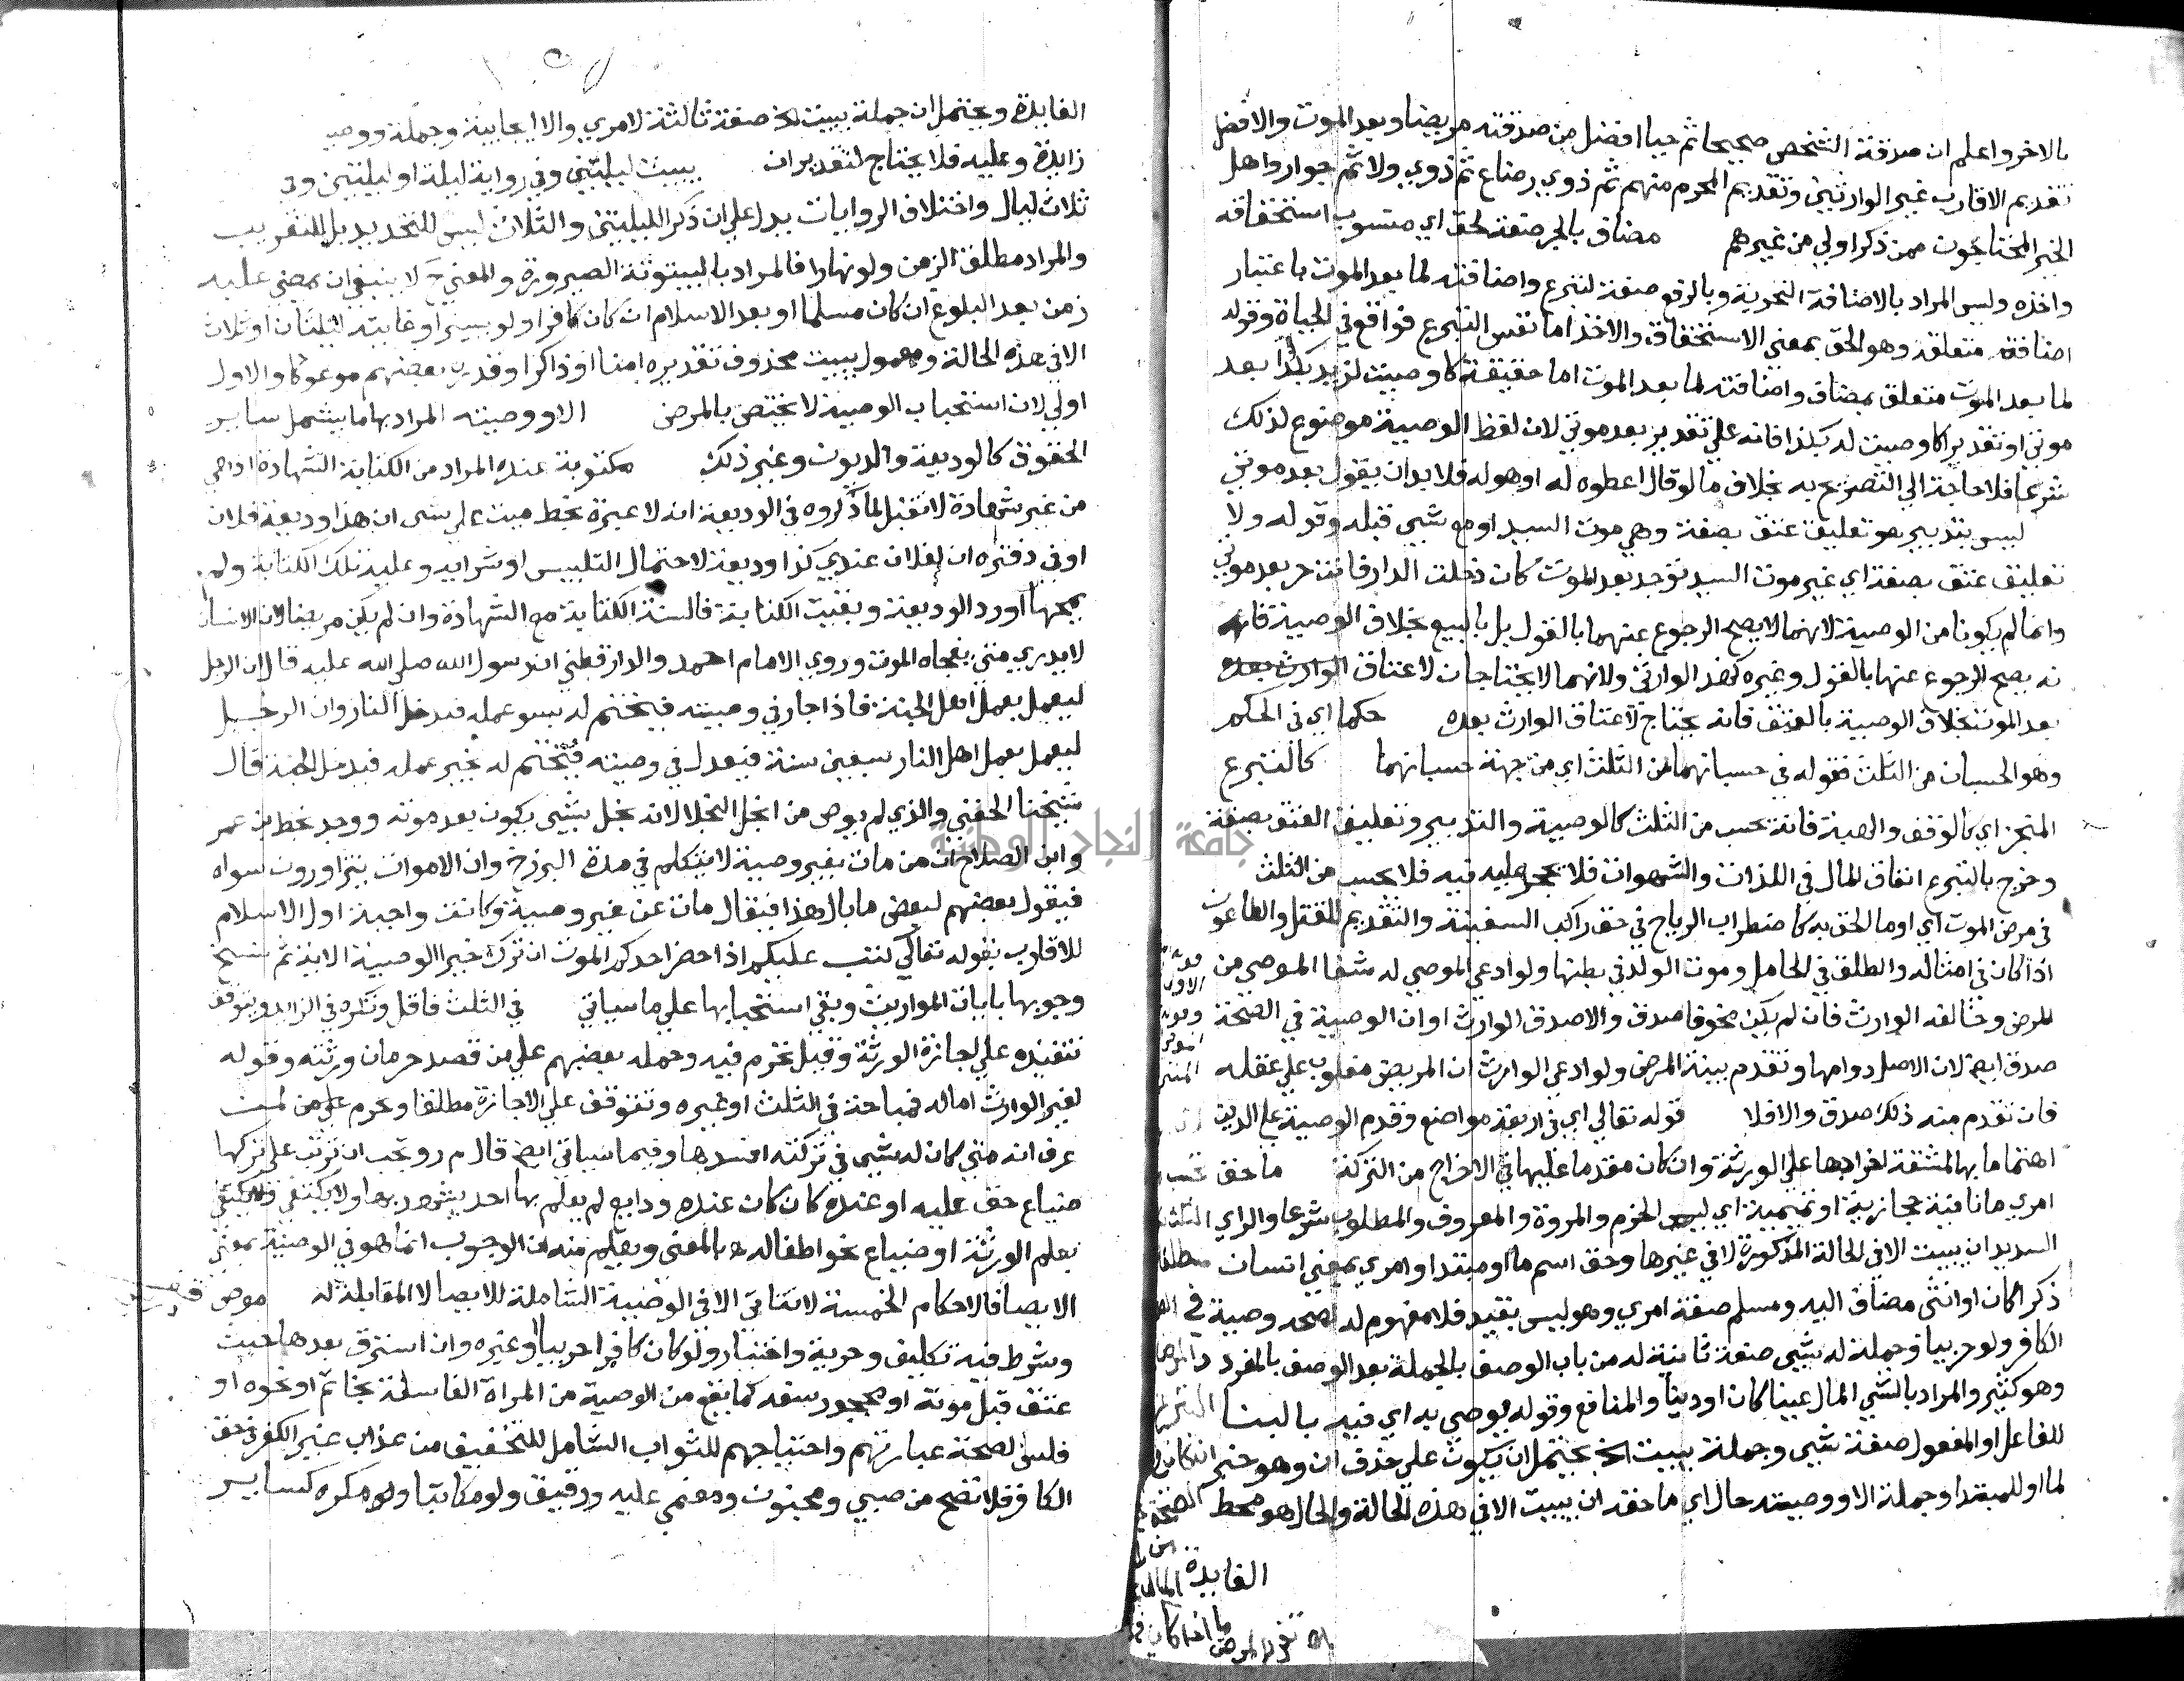 بالاخر واعلم ان صدقة الشخص صحيحا ثم حيا افضل من صدقته مريضا وبعد الموت والافضل
تقديم الاقارب غير الوارثين وتقديم المحرم منهم ثم ذوي رضاع ثم ذوي ولا ثم جوار واهل
الخير المحتاجون ممن ذكر اولي من غيرهم مضاف بالجر صفة لحق اي منسوب استحقاقه
واخذه وليس المراد بالاضافة النحوية وبالرفع صفة لتبرع واضافته لما بعد الموت باعتبار
اضافة متعلقه وهو الحق بمعني الاستحقاق والاخذ اما نفس التبرع فواقع في الحياة وقوله
لما بعد الموت متعلق بمضاف واضافته لما بعد الموت اما حقيقة كاوصيت لزيد بكذا بعد
موتي او تقديرا كاوصيت له بكذا فانه علي تقدير بعد موتي لان لفظ الوصية موضوع لذلك
شرعا فلا حاجة الي التصريح به بخلاف ما لو قال اعطوه له او هو له فلا بد ان يقول بعد موتي
ليس بتدبير هو تعليق عتق بصفة وهي موت السيد او مع شيي قبله وقوله ولا
تعليق عتق بصفة اي غير موت السيد توجد بعد الموت كان دخلت الدار فانت حر بعد موتي
وانما لم يكونا من الوصية لانهما لا يصح الرجوع عنهما بالقول بل بالبيع بخلاف الوصية فانه
يصح الرجوع عنها بالقول وغيره ولانهما لا يحتاجان لاعتاق الوارث بعده
بعد الموت بخلاف الوصية بالعتق فانه يحتاج لاعتاق الوارث بعده حكما اي في الحكم
وهو الحسبان من الثلث فقوله في حسبانهما من الثلث اي من جهة حسبانهما كالتبرع
المنجز اي كالوقف والهبة فانه يحسب من الثلث كالوصية والتدبير وتعليق العتق بصفة
وخرج بالتبرع انفاق المال في اللذات والشهوات فلا يحجر عليه فيه فلا يحسب من الثلث
في مرض الموت اي او ما الحق به كاضطراب الرياح في حق راكب السفينة والتقديم للقتل والطاعون
اذا كان في امثاله والطلق في الحامل وموت الولد في بطنها ولو ادعي الموصي له شفا الموصي من
المرض وخالفه الوارث فان لم يكن مخوفا صدق والا صدق الوارث او ان الوصية في الصحة
صدق ايضا لان الاصل دوامها وتقدم بينة المرض ولو ادعي الوارث ان المريض مغلوب علي عقله
فان تقدم منه ذلك صدق والا فلا قوله تعالي اي في اربعة مواضع وقدم الوصية علي الدين
اهتماما بها لمشقة اخراجها علي الورثة وان كان مقدما عليها في الاخراج من التركة ما حق
امري ما نافية حجازية او تميمية اي ليس الحزم والمروة والمعروف والمطلوب شرعا والراي
السديد ان يبيت الا في الحالة المذكورة لا في غيرها وحق اسم ما او مبتدا وامري بمعني انسان
ذكرا كان او انثي مضاف اليه ومسلم صفة امري وهو ليس بقيد فلا مفهوم له لصحة وصية
الكافر ولو حربيا وجملة له شيي صفة ثانية له من باب الوصف بالجملة بعد الوصف بالمفرد
وهو كثير والمراد بالشي المال عينا كان او دينا والمنافع وقوله يوصي به اي فيه بالبنا
للفاعل او المفعول صفة شيي وجملة يبيت الخ يحتمل ان يكون علي حذف ان وهو خبر
لما او للمبتدا وجملة الا ووصيته حال اي ما حقه ان يبيت الا في هذه الحالة والحال هو محط
الفايدة
الفايدة ويحتمل ان جملة يبيت الخ صفة ثالثة لامري والا ايجابية وجملة ووصي
زايدة وعليه فلا يحتاج لتقدير ان يبيت ليلتين وفي رواية ليلة او ليلتين وفي
ثلاث ليال واختلاف الروايات يدل علي ان ذكر الليلتين والثلاث ليس للتحديد بل للتقريب
والمراد مطلق الزمن ولو نهارا فالمراد بالبيتوتة الصيرورة والمعني ح لا ينبغي ان يمضي عليه
زمن بعد البلوغ ان كان مسلما او بعد الاسلام ان كان كافرا ولو يسيرا وغايته ليلتان او ثلاث
الا في هذه الحالة ومعمول يبيت محذوف تقديره امنا او ذاكرا وقدره بعضهم موعوكا والاول
اولي لان استحباب الوصية لا يختص بالمرض الا ووصيته المراد بها ما يشمل ساير
الحقوق كالوديعة والديون وغير ذلك مكتوبة عنده المراد من الكتابة الشهادة اذ هي
من غير شهادة لا تقبل لما ذكروه في الوديعة انه لا عبرة بخط ميت علي شي ان هذا وديعة فلان
او في دفتره ان لفلان عندي كذا وديعة لاحتمال التلبيس او شرايه وعليه تلك الكتابة ولم
يمحها او رد الوديعة وبقيت الكتابة فالسنة الكتابة مع الشهادة وان لم يكن مريضا لان الانسان
لا يدري متي يفجاه الموت وروي الامام احمد والدارقطني ان رسول الله صلي الله عليه قال ان الرجل
ليعمل بعمل اهل الجنة فاذا جار في وصيته فيختم له بسو عمله فيدخل النار وان الرجل
ليعمل بعمل اهل النار سبعين سنة فيعدل في وصيته فيختم له بخير عمله فيدخل الجنة قال
شيخنا الحفني والذي لم يوص من ابخل البخلا لانه بخل بشيي يكون بعد موته ووجد بخط
وابن الصلاح ان من مات بغير وصية لا يتكلم في مدة البرزخ وان الاموات يتزاورون سواه
فيقول بعضهم لبعض ما بال هذا فيقال مات عن غير وصية وكانت واجبة اول الاسلام
للاقارب بقوله تعالي كتب عليكم اذا حضر احدكم الموت ان ترك خيرا الوصية الاية ثم نسخ
وجوبها بايات المواريث وبقي استحبابها علي ما سياتي في الثلث فاقل وتكره في الزايد ويتوقف
تنفيذه علي اجازة الورثة وقيل تحرم فيه وحمله بعضهم علي من قصد حرمان ورثته وقوله
لغير الوارث اما له فمباحة في الثلث او غيره وتتوقف علي الاجازة مطلقا وتحرم علي من
عرف انه متي كان له شيي في تركته افسدها وفيما سياتي ايضا قال م ر وتجب ان ترتب علي تركها
ضياع حق عليه او عنده كان كان عنده ودايع لم يعلم بها احد يشهد بها ولا يكتفي
بعلم الورثة او ضياع نحو اطفاله بالمعني ويعلم منه ان الوجوب انما هو في الوصية بمعني
الايصا فالاحكام الخمسة لا تتاتي الا في الوصية الشاملة للايصا لا المقابلة له موص
وشرط فيه تكليف وحرية واختيار ولو كان كافرا حربيا او غيره وان استرق بعدها حيث
عتق قبل موته او محجور سفه كما يقع من الوصية من المراة الغاسلة بخاتم او نحوه او
فلس لصحة عبارتهم واحتياجهم للثواب الشامل للتخفيف من عذاب غير الكفر في حق
الكافر فلا تصح من صبي ومجنون ومغمي عليه ورقيق ولو مكاتبا ولا مكره كساير
جامعة النجاح الوطنية